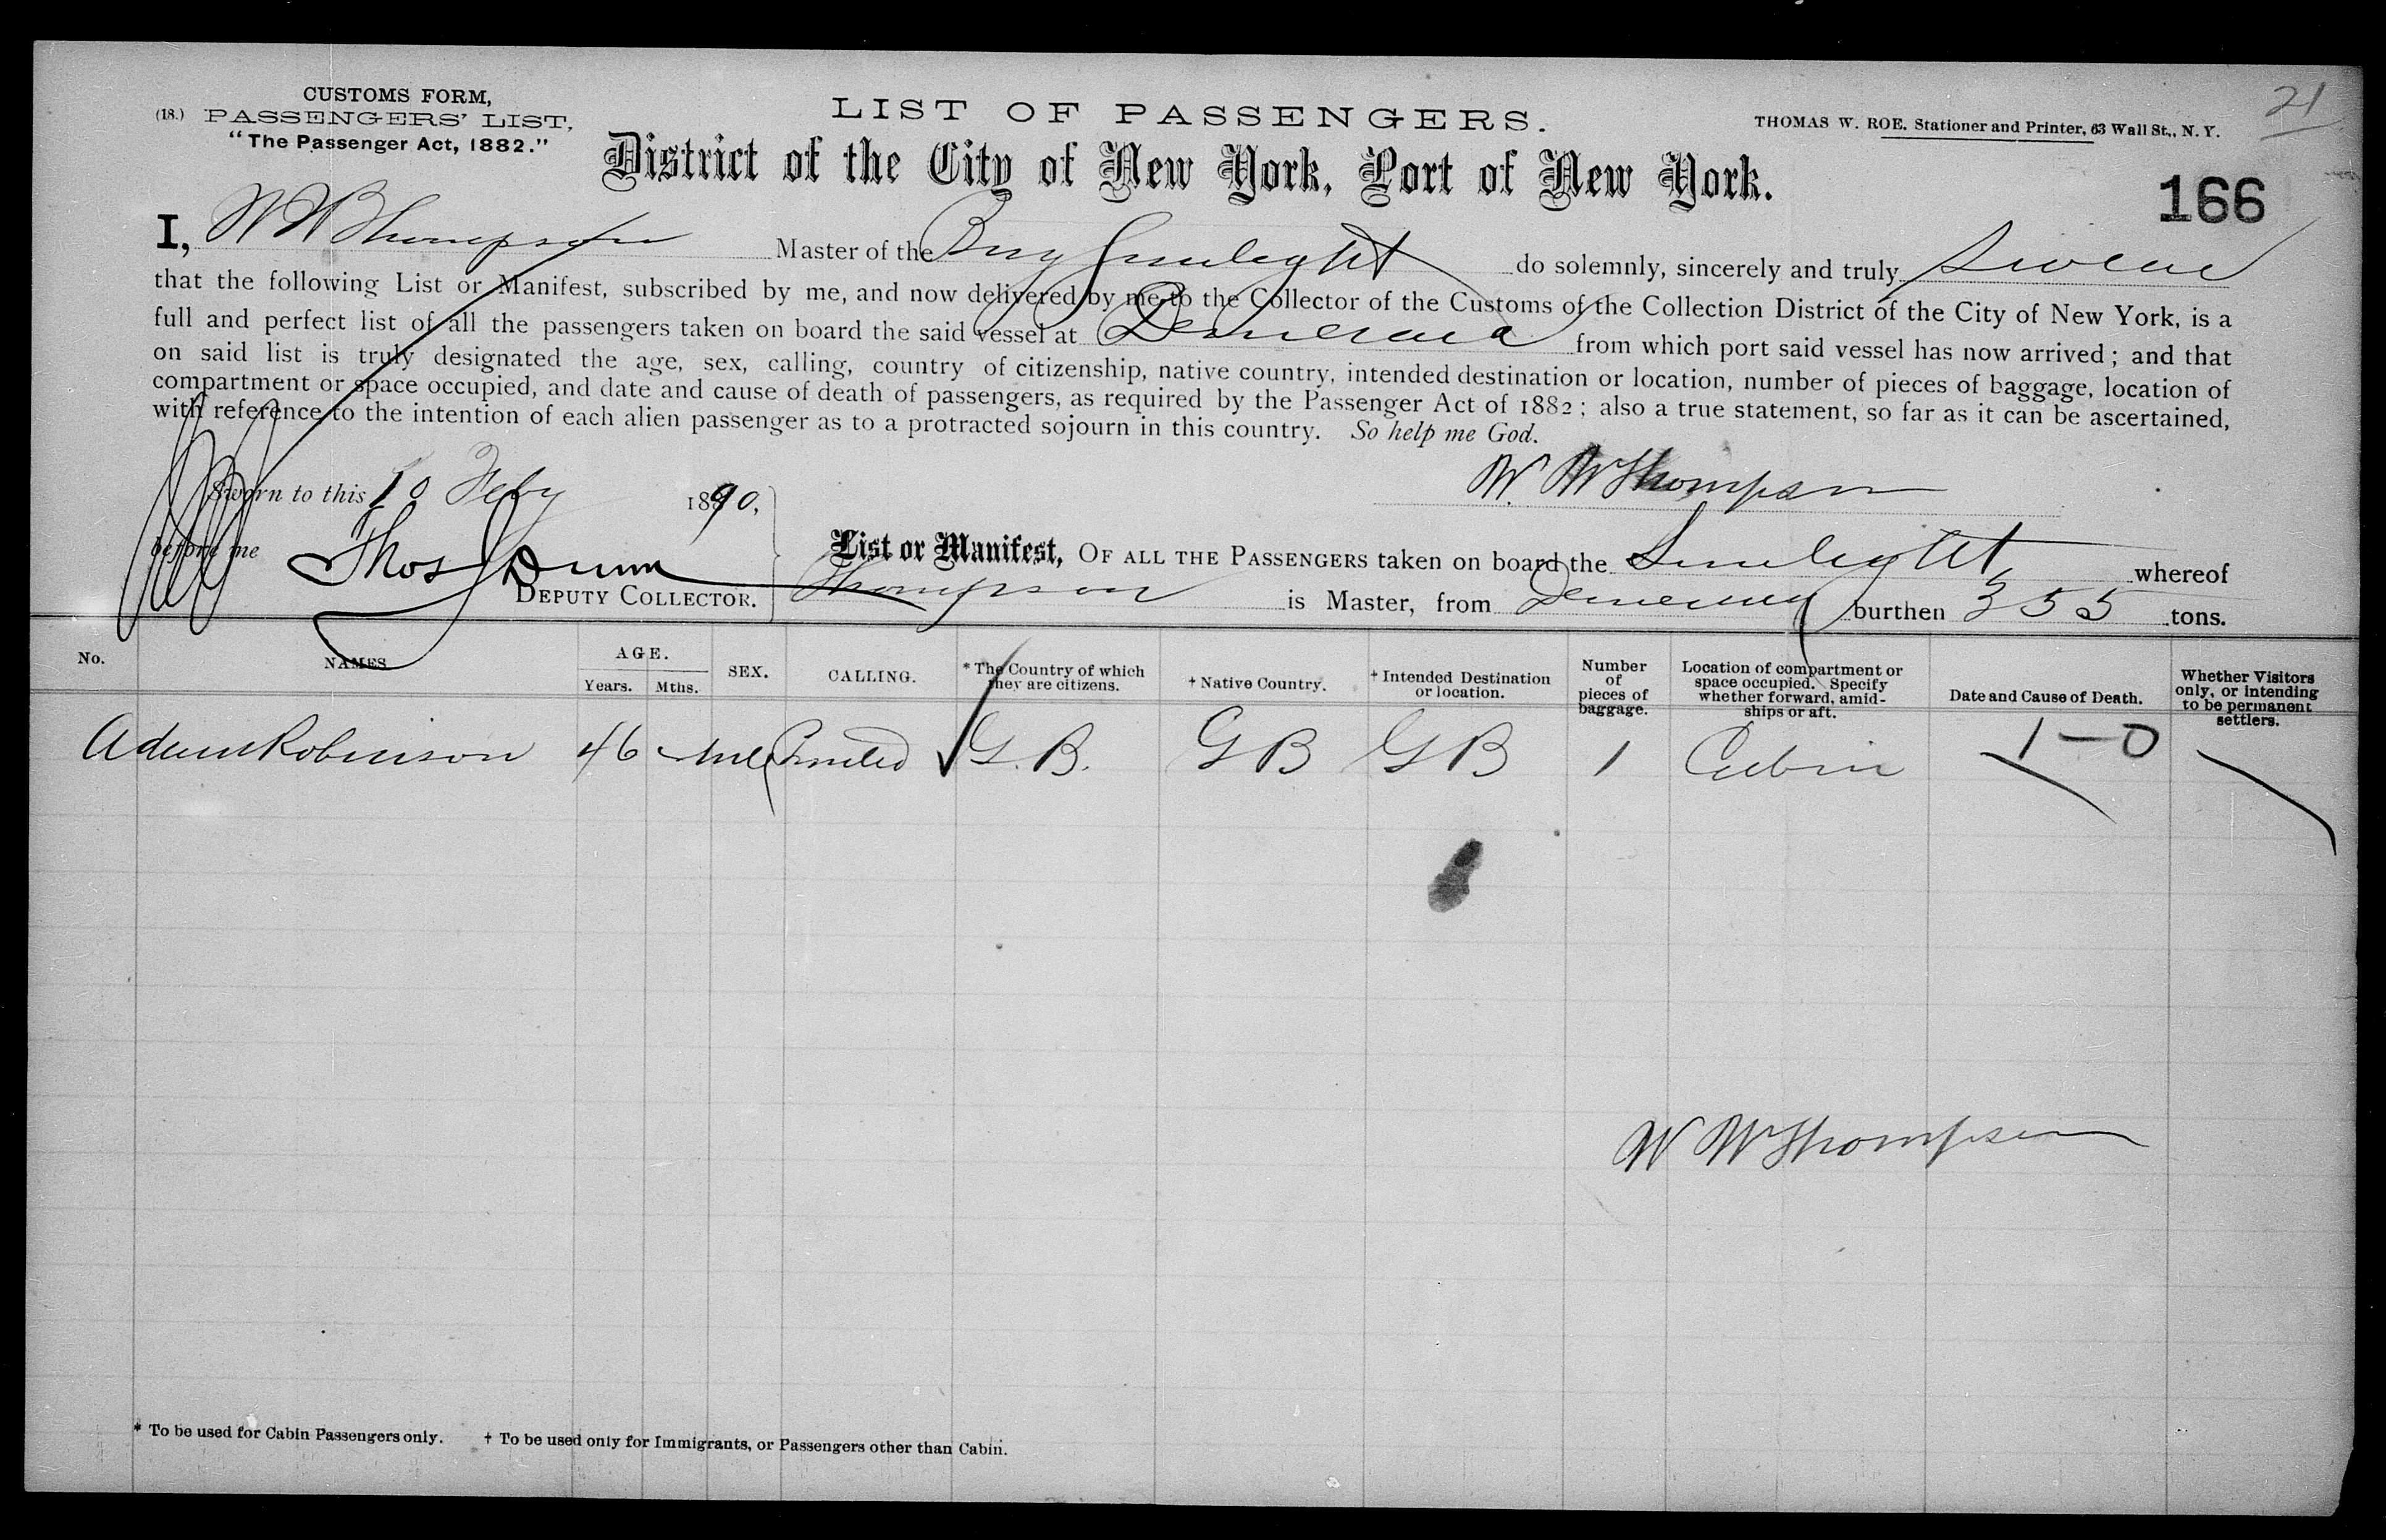 21
CUSTOMS FORM,
(18.) PASSENGERS' LIST,
"The Passenger Act, 1882."
LIST OF PASSENGERS.
THOMAS W. ROE, Stationer and Printer, 63 Wall St., N. Y.
District of the City of New York, Port of New York.
166
I, W W Thompson Master of the Brig Sunlight do solemnly, sincerely and truly Swear
that the following List or Manifest, subscribed by me, and now delivered by me to the Collector of the Customs of the Collection District of the City of New York, is a
full and perfect list of all the passengers taken on board the said vessel at Demerara from which port said vessel has now arrived; and that
on said list is truly designated the age, sex, calling, country of citizenship, native country, intended destination or location, number of pieces of baggage, location of
compartment or space occupied, and date and cause of death of passengers, as required by the Passenger Act of 1882; also a true statement, so far as it can be ascertained,
with reference to the intention of each alien passenger as to a protracted sojourn in this country. So help me God.
W. W Thompson
Sworn to this 10 Feby 1890,
before me Thos Dunn
DEPUTY COLLECTOR.
List or Manifest, OF ALL THE PASSENGERS taken on board the Sunlight whereof
Thompson is Master, from Demerara burthen 355 tons.
No. NAMES AGE. Years. Mths. SEX. CALLING. * The Country of which they are citizens. † Native Country. † Intended Destination or location. Number of pieces of baggage. Location of compartment or space occupied. Specify whether forward, amidships or aft. Date and Cause of Death. Whether Visitors only, or intending to be permanent settlers.
Adam Robinson 46 G. B. G B G B 1 Cabin 1-0
W W Thompson
* To be used for Cabin Passengers only. † To be used only for Immigrants, or Passengers other than Cabin.